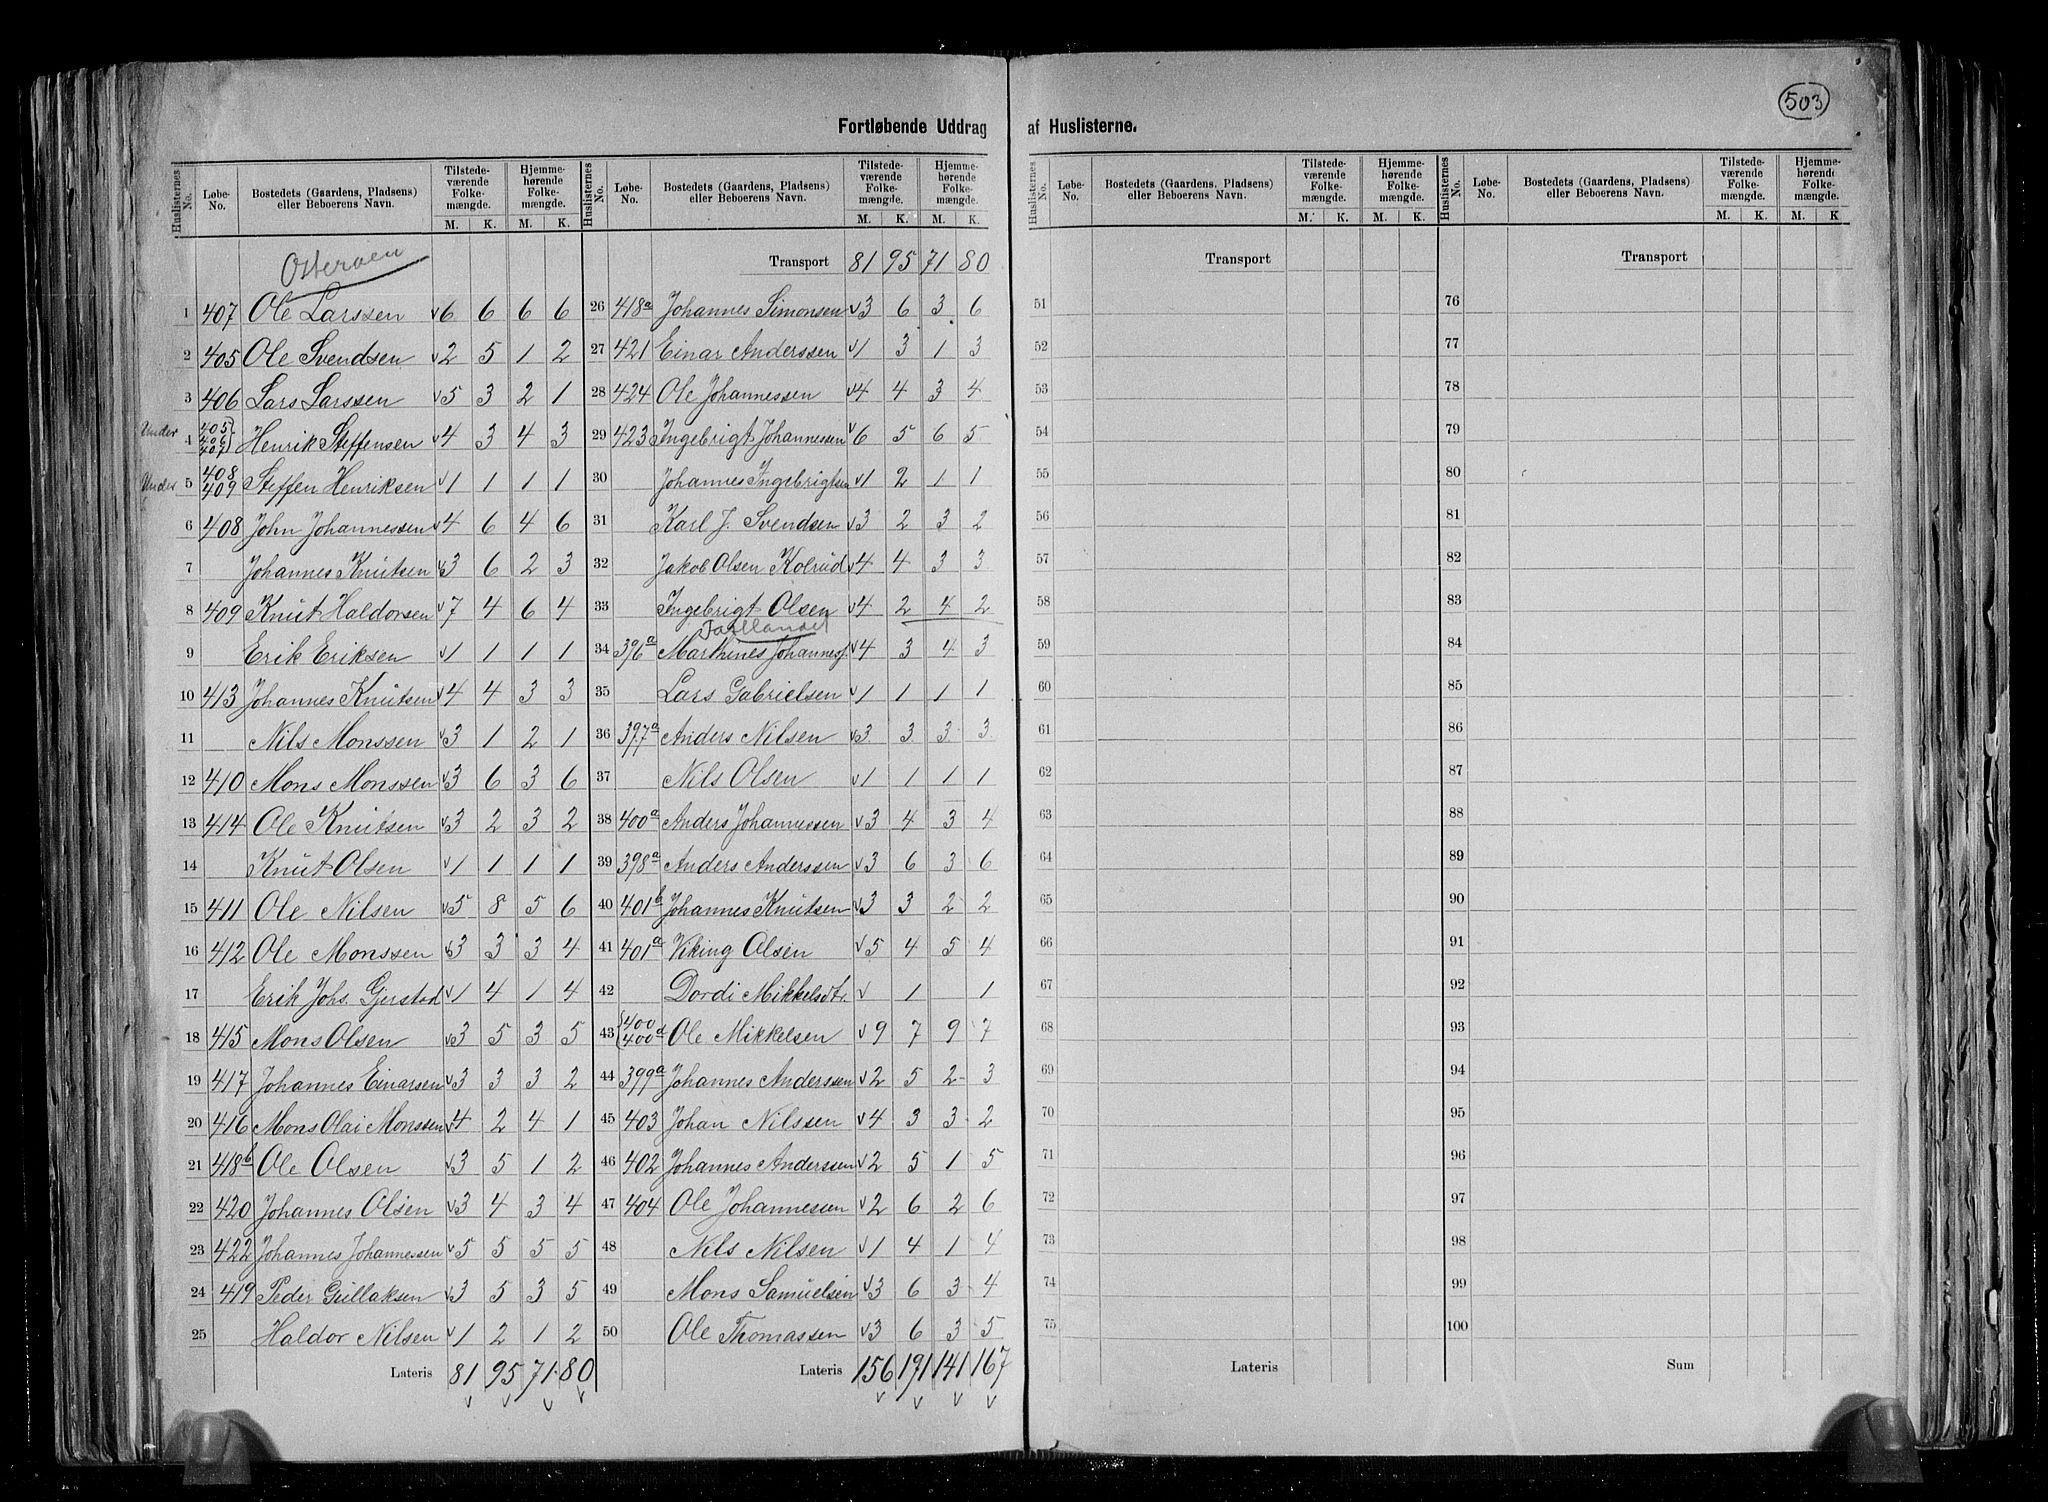 503
Fortløbende Uddrag af Huslisterne.
Huslisternes No. Løbe-No. Bostedets (Gaardens, Pladsens) eller Beboerens Navn. Tilstedeværende Folkemængde. M. K. Hjemmehørende Folkemængde. M. K.
Osterøen
1 407 Ole Larssen v 6 6 6 6
2 405 Ole Svendsen v 2 5 1 2
3 406 Lars Larssen v 5 3 2 1
Under 4 405 406 407 Henrik Steffensen v 4 3 4 3
Under 5 408 409 Steffen Henriksen v 1 1 1 1
6 408 John Johannessen v 4 6 4 6
7 Johannes Knutsen v 3 6 2 3
8 409 Knut Haldorsen v 7 4 6 4
9 Erik Eriksen v 1 1 1 1
10 413 Johannes Knutsen v 4 4 3 3
11 Nils Monssen v 3 1 2 1
12 410 Mons Monssen v 3 6 3 6
13 414 Ole Knutsen v 3 2 3 2
14 Knut Olsen v 1 1 1 1
15 411 Ole Nilsen v 5 8 5 6
16 412 Ole Monssen v 3 3 3 4
17 Erik Johs. Gjerstad v 1 4 1 4
18 415 Mons Olsen v 3 5 3 5
19 417 Johannes Einarsen v 3 3 3 2
20 416 Mons Olai Monssen v 4 2 4 1
21 418b Ole Olsen v 3 5 1 2
22 420 Johannes Olsen v 3 4 3 4
23 422 Johannes Johannessen v 5 5 5 5
24 419 Peder Gullaksen v 3 5 3 5
25 Haldor Nilsen v 1 2 1 2
Lateris 81 95 71 80
v v v v
Huslisternes No. Løbe-No. Bostedets (Gaardens, Pladsens) eller Beboerens Navn. Tilstedeværende Folkemængde. M. K. Hjemmehørende Folkemængde. M. K.
Transport 81 95 71 80
26 418a Johannes Simonsen v 3 6 3 6
27 421 Einar Anderssen v 1 3 1 3
28 424 Ole Johannessen v 4 4 3 4
29 423 Ingebrigt Johannessen v 6 5 6 5
30 Johannes Ingebrigtsen v 1 2 1 1
31 Karl J. Svendsen v 3 2 3 2
32 Jakob Olsen Kolrud v 4 4 3 3
33 Ingebrigt Olsen v 4 2 4 2
34 396a Marthines Johannes. v 4 3 4 3
35 Lars Gabrielsen v 1 1 1 1
36 397a Anders Nilsen v 3 3 3 3
37 Nils Olsen v 1 1 1 1
38 400a Anders Johannessen v 3 4 3 4
39 398a Anders Anderssen v 3 6 3 6
40 401b Johannes Knutsen v 3 3 2 2
41 401a Viking Olsen v 5 4 5 4
42 Dordi Mikkelsdtr. v 1 1
43 400 400d Ole Mikkelsen v 9 7 9 7
44 399a Johannes Anderssen v 2 5 2 3
45 403 Johan Nilssen v 4 3 3 2
46 402 Johannes Anderssen v 2 5 1 5
47 404 Ole Johannessen v 2 6 2 6
48 Nils Nilsen v 1 4 1 4
49 Mons Samuelsen v 3 6 3 4
50 Ole Thomassen v 3 6 3 5
Lateris 156 191 141 167
v v v v
Huslisternes No. Løbe-No. Bostedets (Gaardens, Pladsens) eller Beboerens Navn. Tilstedeværende Folkemængde. M. K. Hjemmehørende Folkemængde. M. K.
Transport
51
52
53
54
55
56
57
58
59
60
61
62
63
64
65
66
67
68
69
70
71
72
73
74
75
Lateris
Huslisternes No. Løbe-No. Bostedets (Gaardens, Pladsens) eller Beboerens Navn. Tilstedeværende Folkemængde. M. K. Hjemmehørende Folkemængde. M. K
Transport
76
77
78
79
80
81
82
83
84
85
86
87
88
89
90
91
92
93
94
95
96
97
98
99
100
Sum